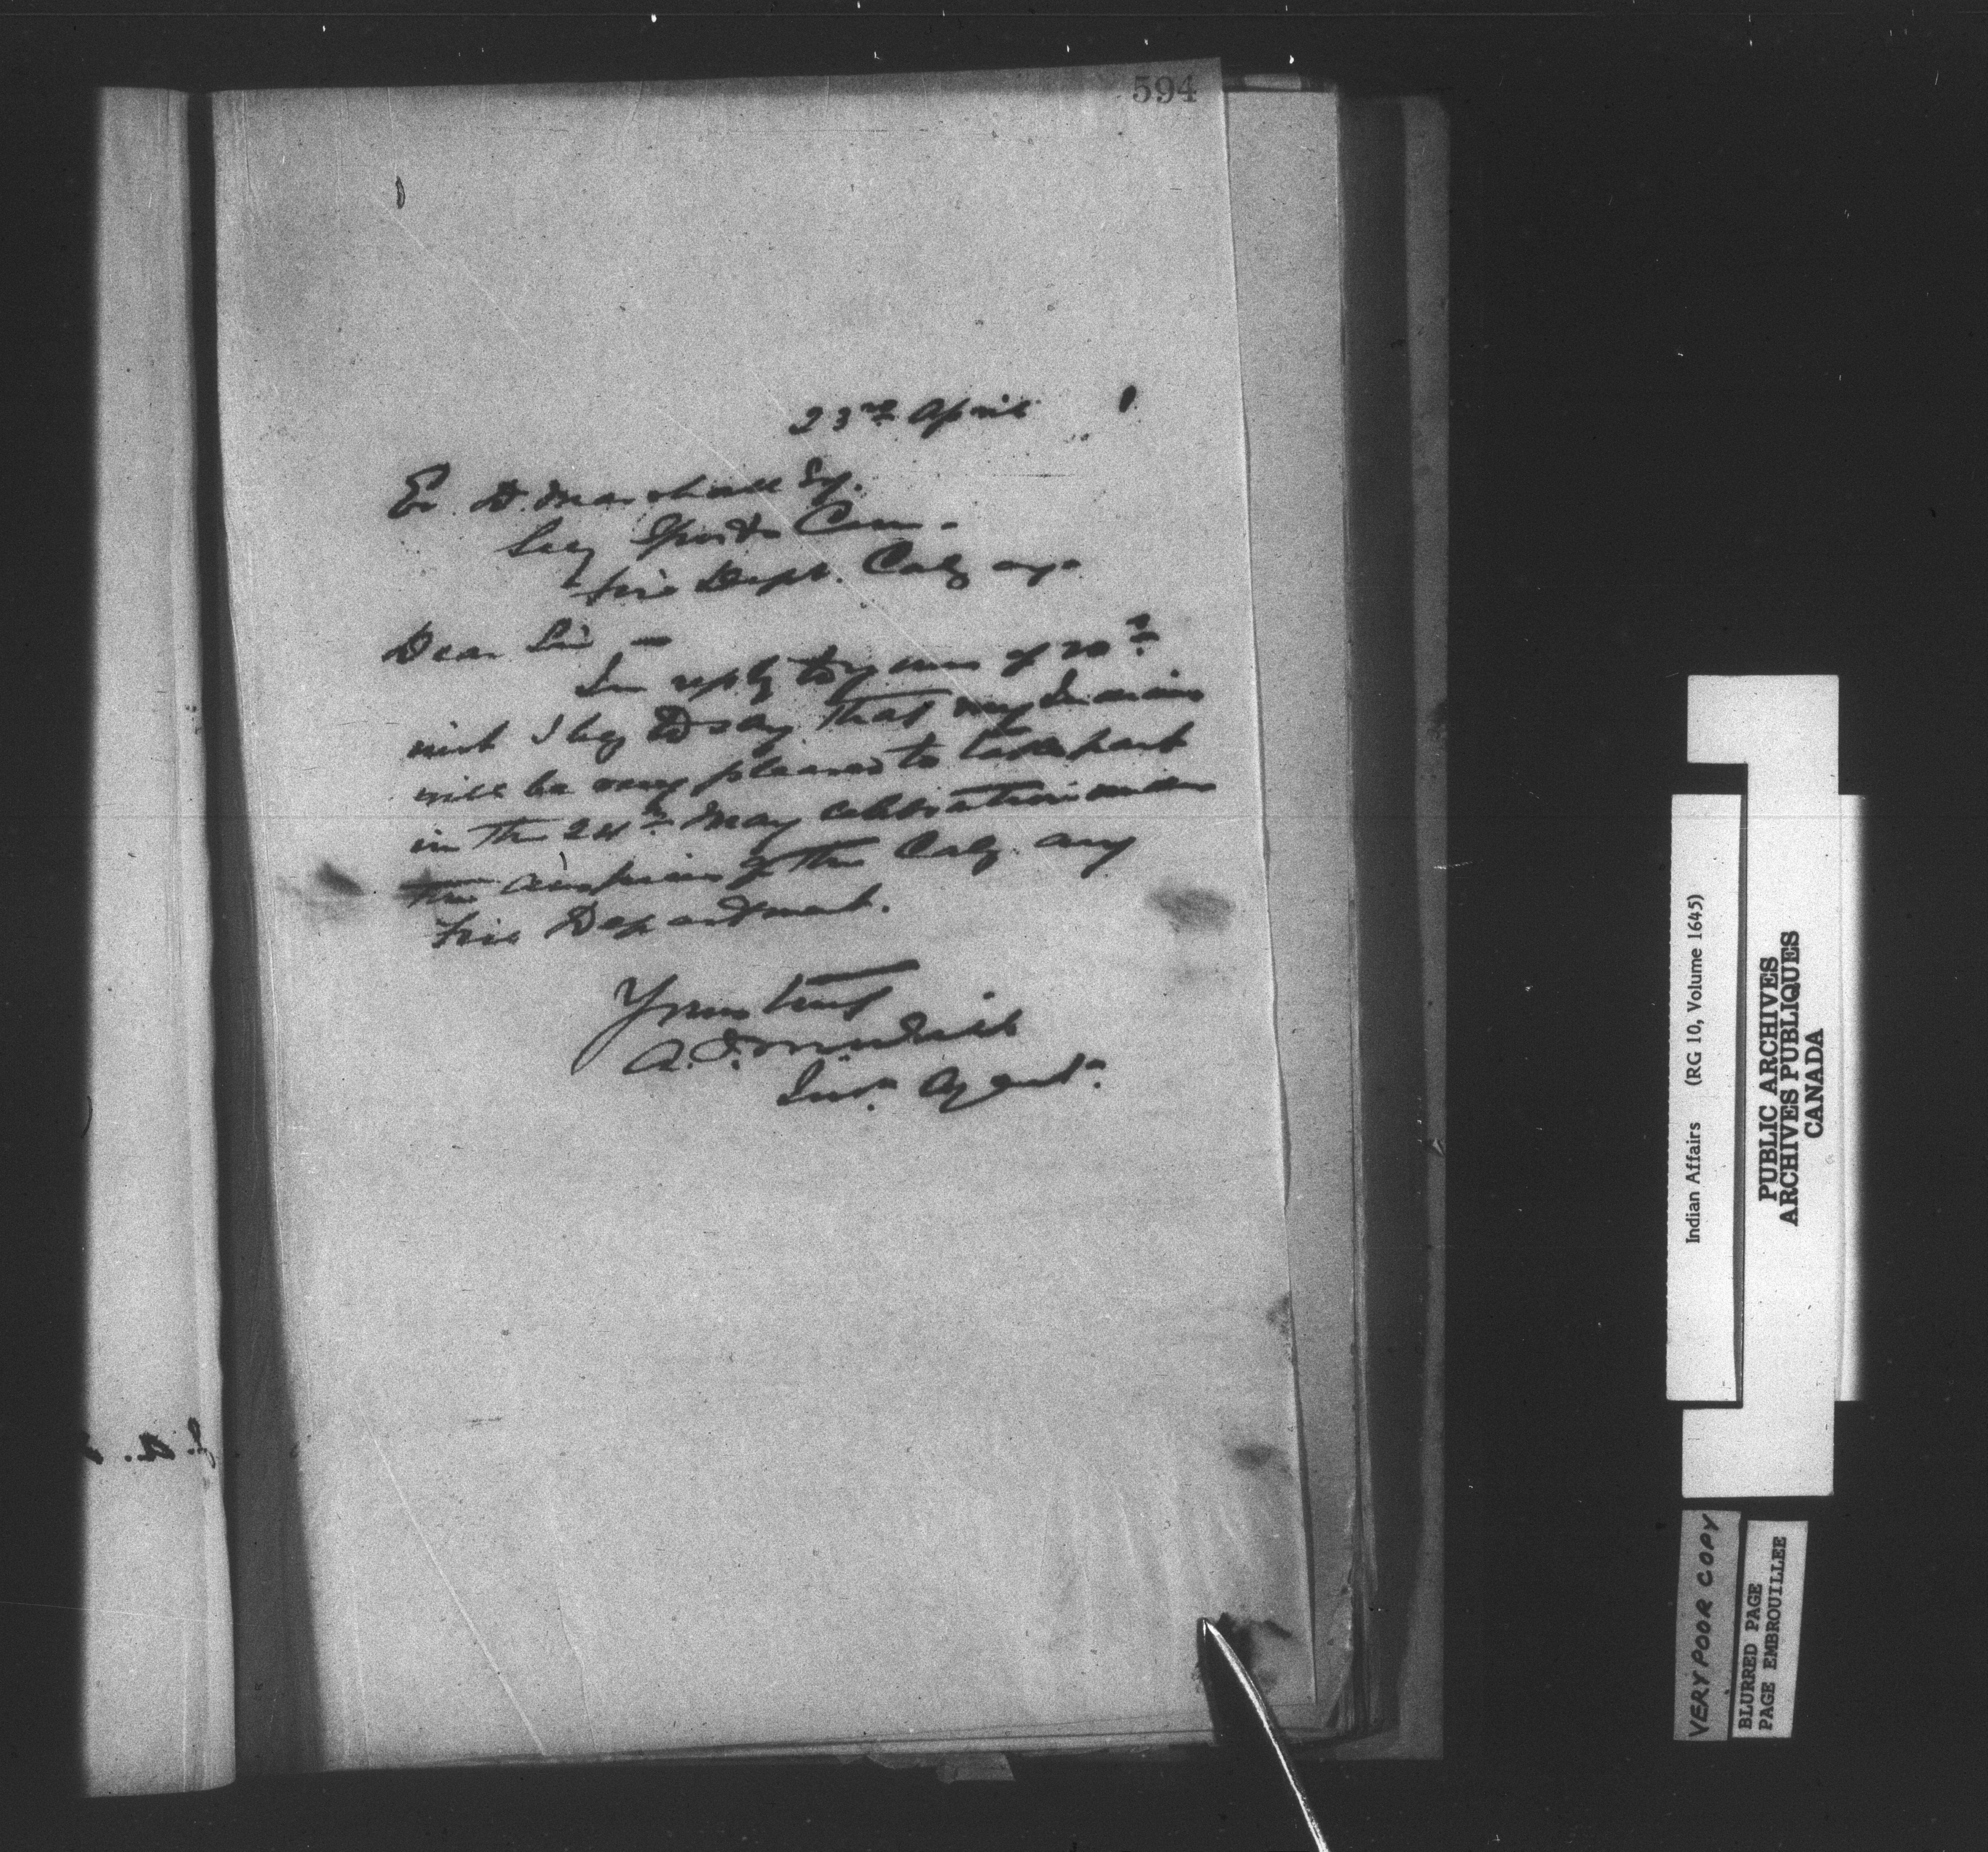 594
23rd April 1
E. D. Marshall Esq.
Secy Sports Com-
Fire Dept. Calgary.
Dear Sir, -
In reply to yours of 20th
inst I beg to say that my Indians
will be very pleased to take part
in the 24th May celebration under
the auspices of the Calgary
Fire Department.
Yours truly
A. J. McNeill
Ind. Agent.
Indian Affairs (RG 10, Volume 1645)
PUBLIC ARCHIVES
ARCHIVES PUBLIQUES
CANADA
VERY POOR COPY
BLURRED PAGE
PAGE EMBROUILLEE